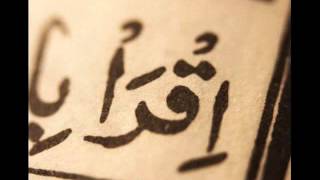 اِقْرَاْ بِا